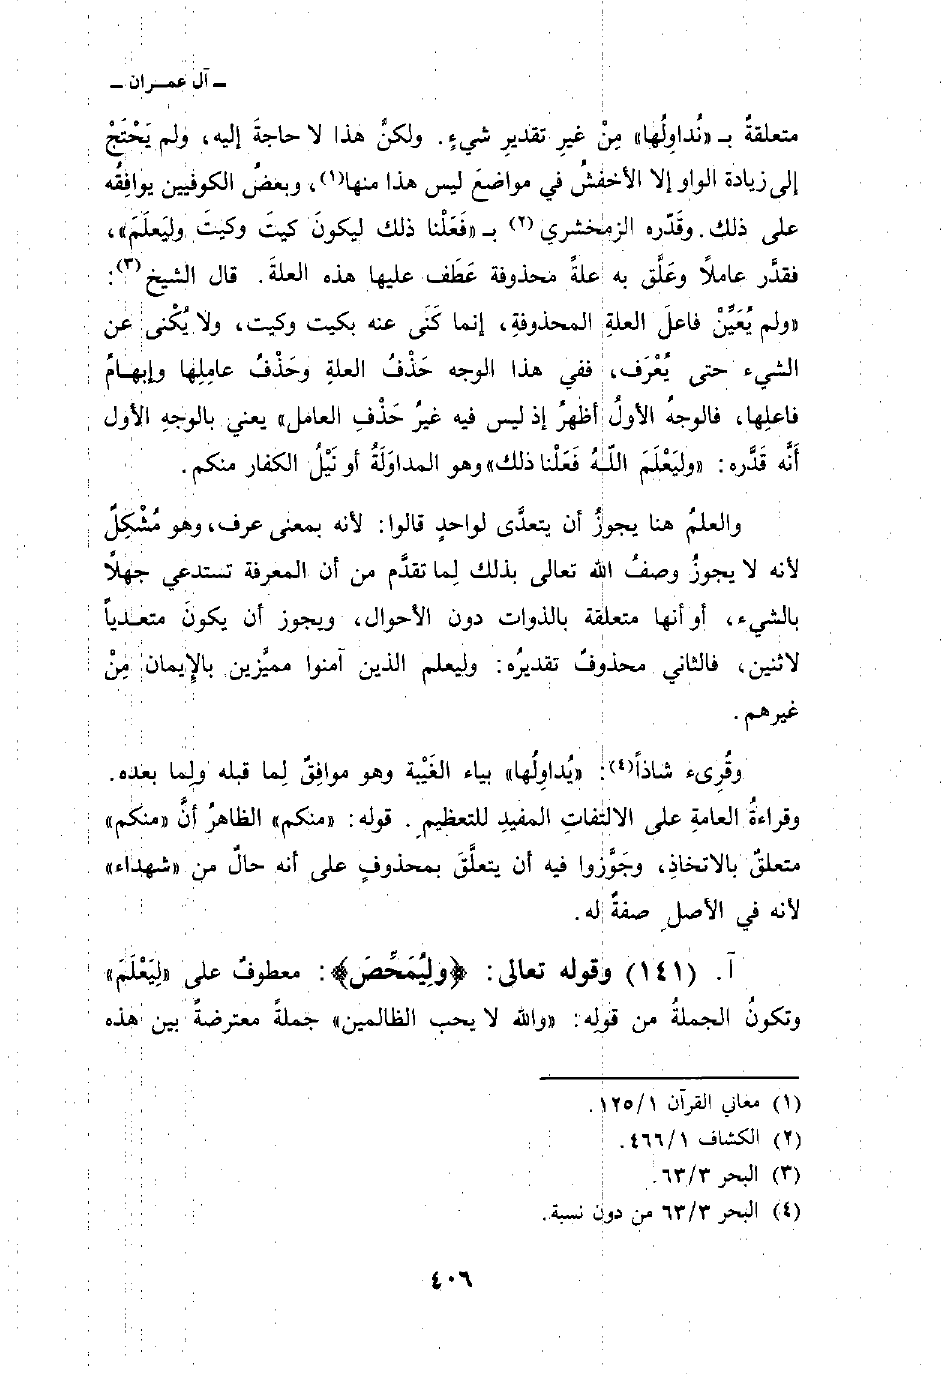 ــ آل عمــران ــ
متعلقةٌ بـ «نُداوِلُها» مِنْ غيرِ تقديرِ شيءٍ. ولكنَّ هذا لا حاجةَ إليه، ولم يَحْتَجْ
إلى زيادة الواو إلا الأخفشُ في مواضعَ ليس هذا منها(١)، وبعضُ الكوفيين يوافِقُه
على ذلك. وقَدَّره الزمخشري(٢) بـ «فَعَلْنا ذلك ليكونَ كيتَ وكيتَ وليَعلَمَ»،
فقدَّر عاملاً وعَلَّق به علةً محذوفة عَطَف عليها هذه العلةَ. قال الشيخ(٣):
«ولم يُعَيِّنْ فاعلَ العلةِ المحذوفةِ، إنما كَنَى عنه بكيت وكيت، ولا يُكْنى عن
الشيء حتى يُعْرَف، ففي هذا الوجه حَذْفُ العلةِ وحَذْفُ عامِلِها وإبهــامُ
فاعلِها، فالوجهُ الأولُ أظهرُ إذ ليس فيه غيرُ حَذْفِ العامل» يعني بالوجهِ الأول
أنَّه قَدَّره: «وليَعْلَمَ اللَّـهُ فَعَلْنا ذلك» وهو المداوَلَةُ أو نَيْلُ الكفار منكم.
والعلمُ هنا يجوزُ أن يتعدَّى لواحدٍ قالوا: لأنه بمعنى عرف، وهو مُشْكِلٌ
لأنه لا يجوزُ وصفُ الله تعالى بذلك لِما تقدَّم من أن المعرفة تستدعي جهلاً
بالشيء، أو أنها متعلقة بالذوات دون الأحوال، ويجوز أن يكونَ متعـدياً
لاثنين، فالثاني محذوفٌ تقديرُه: وليعلم الذين آمنوا مميَّزين بالإِيمان مِنْ
غيرهم.
وقُرِىء شاذاً(٤): «يُداوِلُها» بياء الغَيْبة وهو موافِقٌ لِما قبله ولِما بعده.
وقراءةُ العامةِ على الالتفاتِ المفيدِ للتعظيمِ. قوله: «منكم» الظاهرُ أنَّ «منكم»
متعلقٌ بالاتخاذِ، وجَوَّزوا فيه أن يتعلَّقَ بمحذوفٍ على أنه حالٌ من «شهداء»
لأنه في الأصلِ صفةٌ له.
آ. (١٤١) وقوله تعالى: ﴿ولِيُمَحِّصَ﴾: معطوفٌ على «لِيَعْلَمَ»
وتكونُ الجملةُ من قولِه: «والله لا يحب الظالمين» جملةً معترضةً بين هذه
(١) معاني القرآن ١/١٢٥.
(٢) الكشاف ١/٤٦٦.
(٣) البحر ٣/٦٣.
(٤) البحر ٣/٦٣ من دون نسبة.
٤٠٦